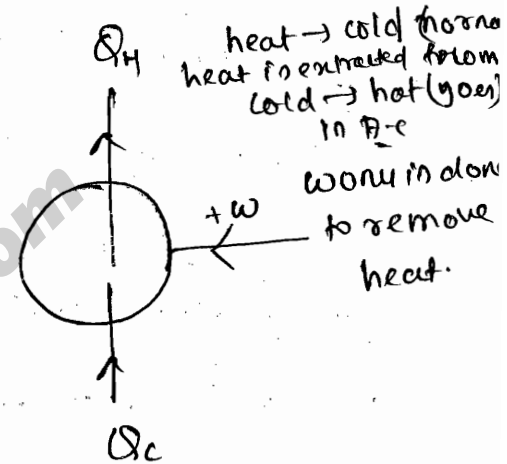 QH
heat → cold
heat is extracted from
cold → hot (goes)
in
+W
work is don
to remove
heat.
Qc
om